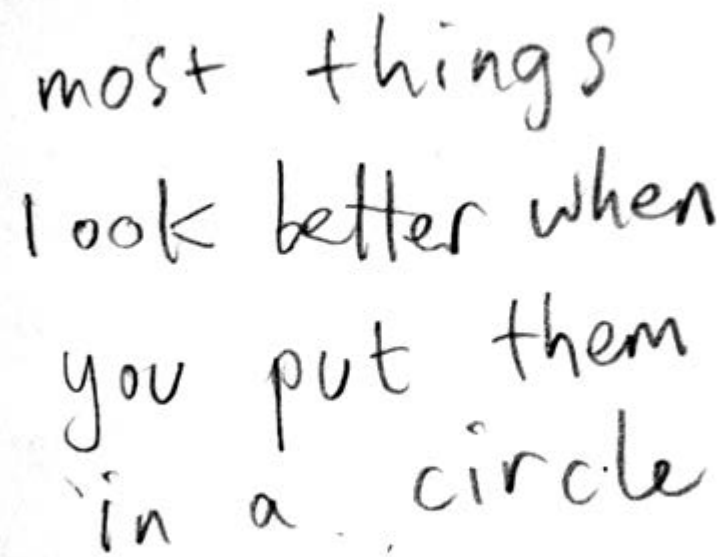 most things
look better when
you put them
in a circle